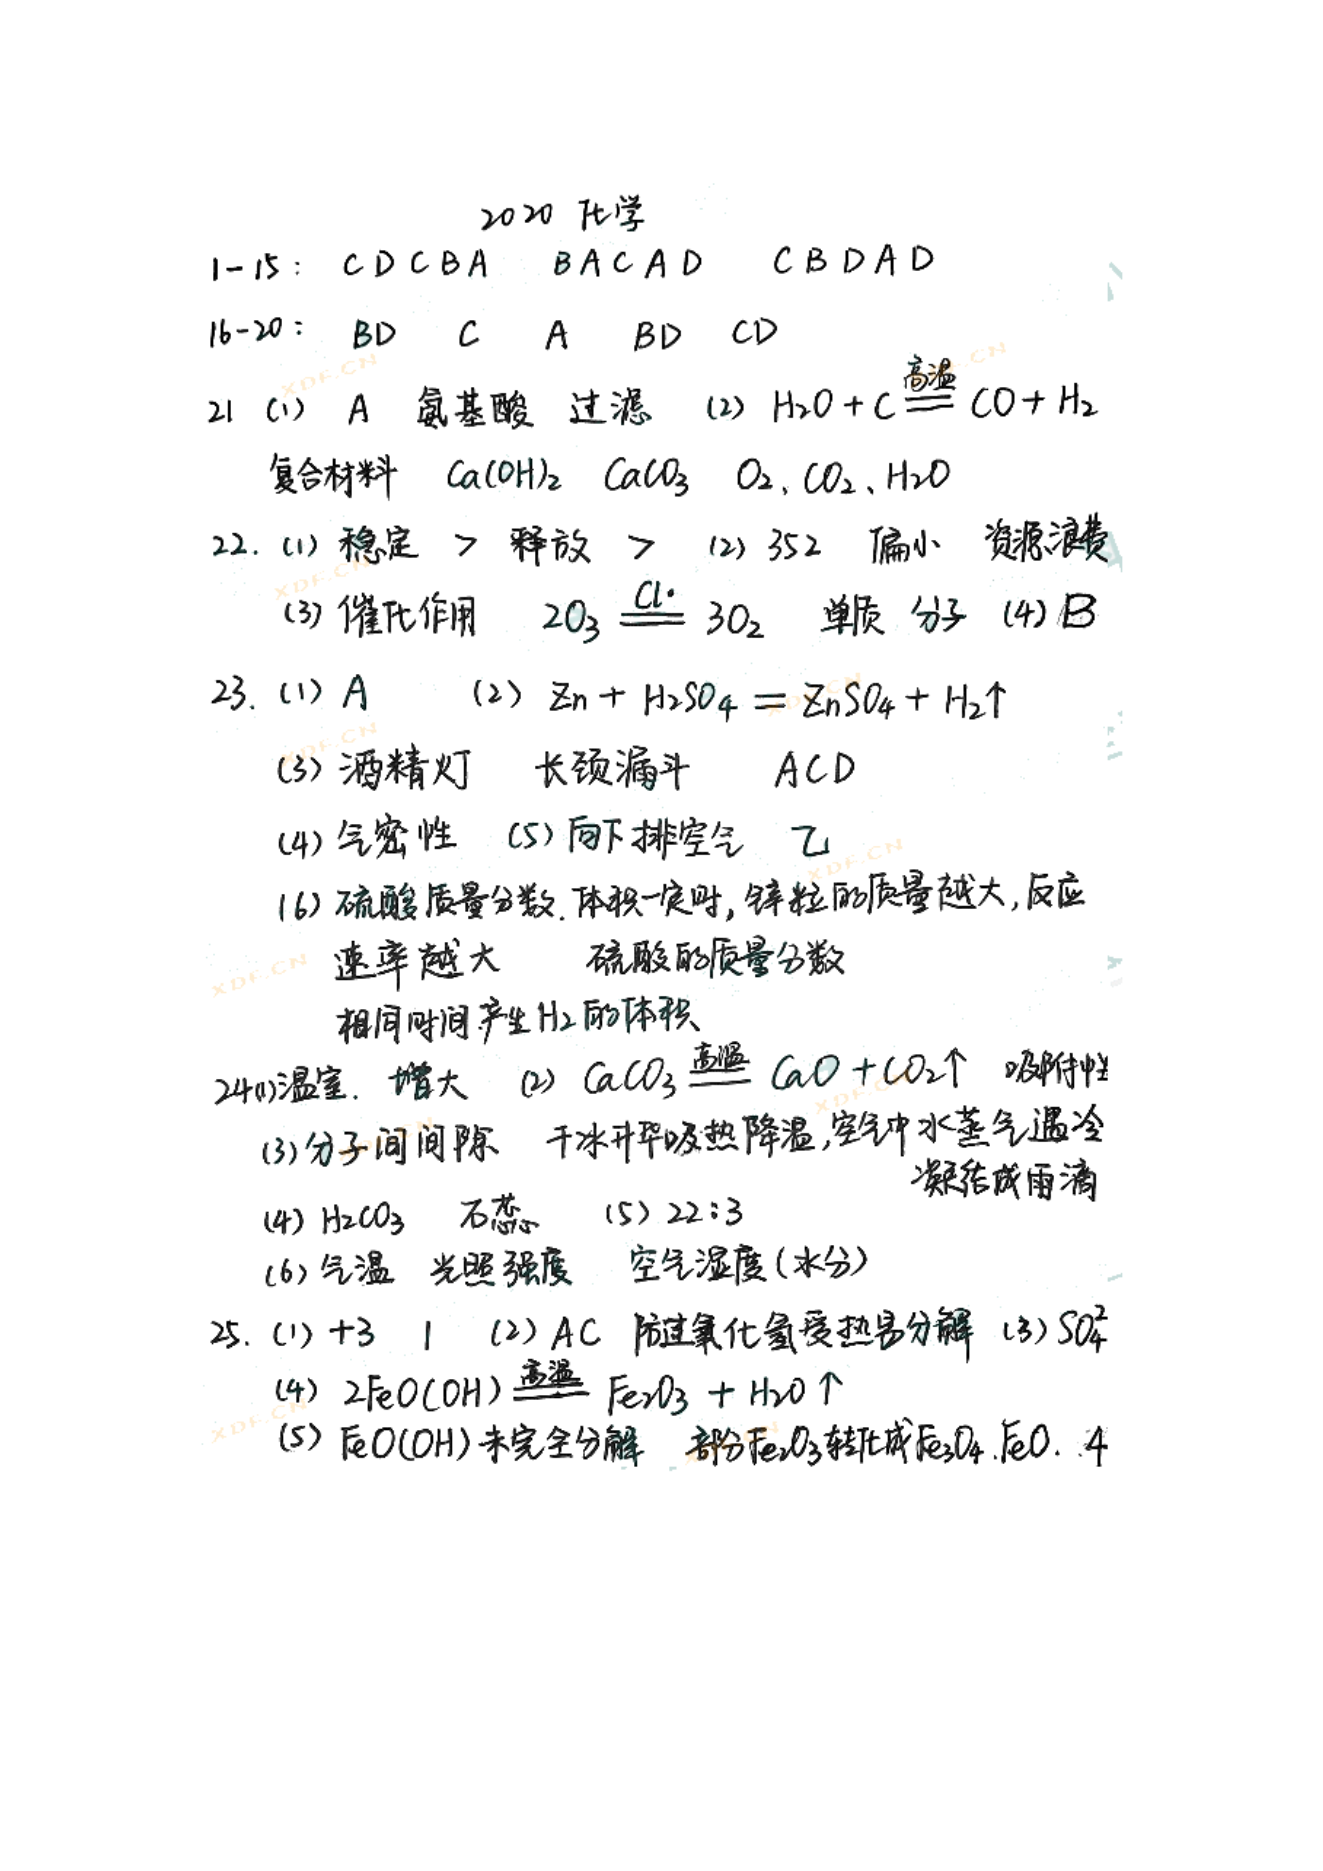 2020 化学
1-15: CDCBA BACAD CBDAD
16-20: BD C A BD CD
21 (1) A 氨基酸 过滤 (2) H₂O + C 高温 == CO + H₂
复合材料 Ca(OH)₂ CaCO₃ O₂、CO₂、H₂O
22. (1) 稳定 > 释放 > (2) 352 偏小 资源浪费
(3) 催化作用 2O₃ Cl· == 3O₂ 单质 分子 (4) B
23. (1) A (2) Zn + H₂SO₄ = ZnSO₄ + H₂↑
(3) 酒精灯 长颈漏斗 ACD
(4) 气密性 (5) 向下排空气 乙
(6) 硫酸质量分数、体积一定时, 锌粒的质量越大, 反应
速率越大 硫酸的质量分数
相同时间产生H₂的体积
24(1)温室. 增大 (2) CaCO₃ 高温 == CaO + CO₂↑ 吸附性
(3) 分子间间隙 干冰升华吸热降温, 空气中水蒸气遇冷
凝结成雨滴
(4) H₂CO₃ 石蕊 (5) 22:3
(6) 气温 光照强度 空气湿度(水分)
25. (1) +3 1 (2) AC 防过氧化氢受热易分解 (3) SO₄²
(4) 2FeO(OH) 高温 == Fe₂O₃ + H₂O↑
(5) FeO(OH)未完全分解 部分Fe₂O₃转化成Fe₃O₄、FeO. 4
XDF.CN
XDF.CN
XDF.CN
XDF.CN
XDF.CN
XDF.CN
XDF.CN
XDF.CN
XDF.CN